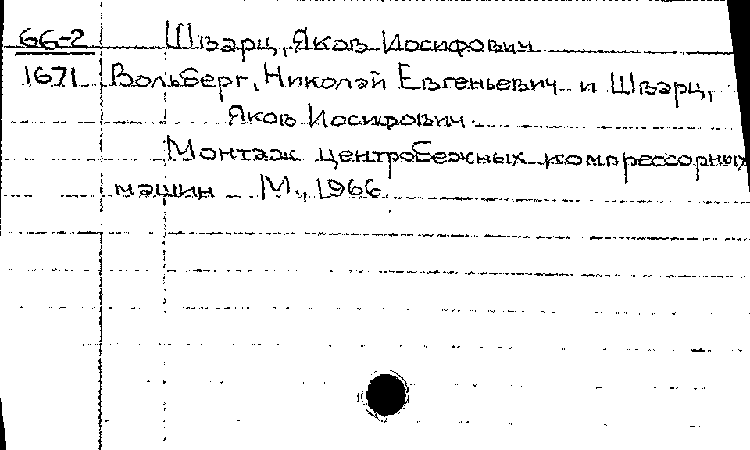 66-2 Шварц, Яков Иосифович
1671 Вольберг, Николай Евгеньевич и Шварц,
Яков Иосифович.
Монтаж центробежных компрессорных
машин М., 1966.